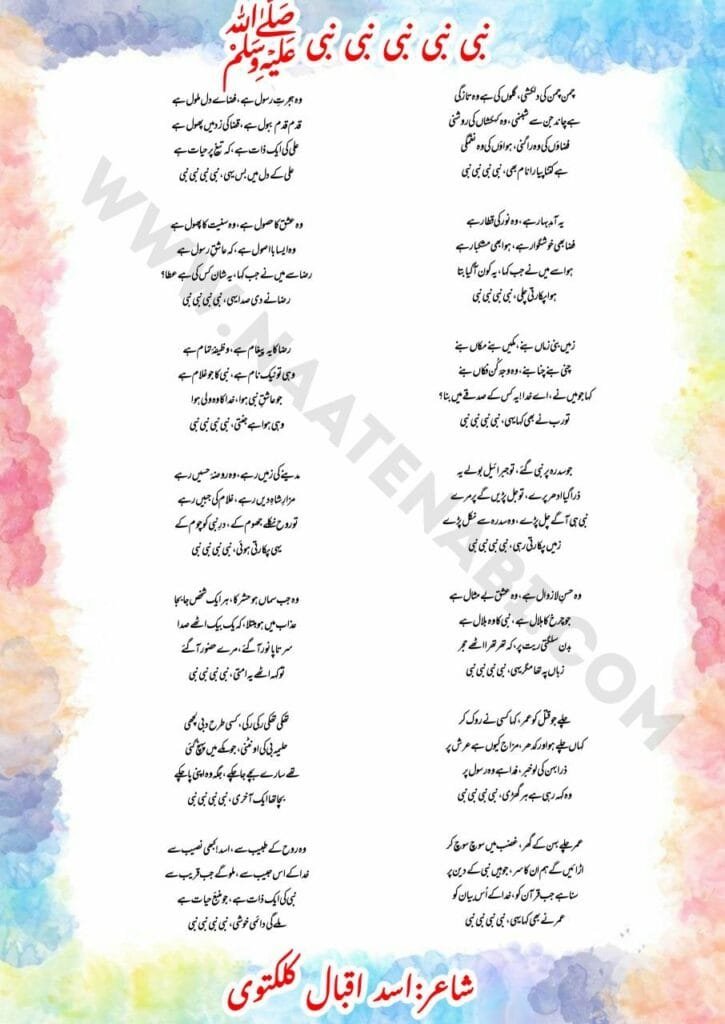 نبی نبی نبی نبی نبی صَلَّی اللّٰہُ عَلَیْہِ وَسَلَّم
چمن چمن کی دلکشی، گلوں کی ہے وہ تازگی
ہے چاند جن سے شبنمی، وہ کہکشاں کی روشنی
فضاؤں کی وہ راگنی، ہواؤں کی وہ نغمگی
ہے کتنا پیارا نام بھی، نبی نبی نبی نبی
یہ آمدِ بہار ہے، وہ نور کی قطار ہے
فضا بھی خوشگوار ہے، ہوا بھی مشکبار ہے
ہوا سے میں نے جب کہا، یہ کون آگیا بتا
ہوا پکارتی چلی، نبی نبی نبی نبی
زمیں بنی زماں بنے، مکیں بنے مکاں بنے
چنی بنے چنا بنے، وہ وجہِ کُن فکاں بنے
کہا جو میں نے، اے خدا! یہ کس کے صدقے میں بنا؟
تو رب نے بھی کہا یہی، نبی نبی نبی نبی
جو سدرہ پر نبی گئے، تو جبرائیل بولے یہ
ذرا گیا ادھر پرے، تو جل پڑیں گے پر مرے
نبی ہی آگے چل پڑے، وہ سدرہ سے نکل پڑے
زمیں پکارتی رہی، نبی نبی نبی نبی
وہ حسنِ لازوال ہے، وہ عشقِ بے مثال ہے
جو چرخ کا ہلال ہے، نبی کا وہ بلال ہے
بدن سلگتی ریت پر، کہ تھرتھرا اٹھے حجر
زباں پہ تھا مگر یہی، نبی نبی نبی نبی
چلے جو قتل کو عمر، کہا کسی نے روک کر
کہاں چلے ہو اور کدھر، مزاج کیوں ہے عرش پر
ذرا بہن کی لو خبر، فدا ہے وہ رسول پر
وہ کہہ رہی ہے ہر گھڑی، نبی نبی نبی نبی
عمر چلے بہن کے گھر، غضب میں سوچ سوچ کر
اڑائیں گے ہم ان کا سر، جو ہیں نبی کے دین پر
سنا ہے جب قرآن کو، خدا کے اُس بیان کو
عمر نے بھی کہا یہی، نبی نبی نبی نبی
وہ ہجرتِ رسول ہے، فضاے دل ملول ہے
قدم قدم ببول ہے، قضا کی زد میں پھول ہے
علی کی ایک ذات ہے، کہ تیغ پر حیات ہے
علی کے دل میں بس یہی، نبی نبی نبی نبی
وہ عشق کا حصول ہے، وہ سنیت کا پھول ہے
وہ ایسا با اصول ہے، کہ عاشقِ رسول ہے
رضا سے میں نے جب کہا، یہ شان کس کی ہے عطا؟
رضا نے دی صدا یہی، نبی نبی نبی نبی
رضا کا یہ پیغام ہے، وظیفۂ تمام ہے
وہی تو نیک نام ہے، نبی کا جو غلام ہے
جو عاشقِ نبی ہوا، خدا کا وہ ولی ہوا
وہی ہوا ہے جنتی، نبی نبی نبی نبی
مدینے کی زمیں رہے، وہ روضۂ حسیں رہے
مزارِ شاہِ دیں رہے، غلام کی جبیں رہے
تو روح نکلے جھوم کے، درِ نبی کو چوم کے
یہی پکارتی ہوئی، نبی نبی نبی نبی
وہ جب سماں ہو حشر کا، ہر ایک شخص جا بجا
عذاب میں ہو مبتلا، کہ یک بیک اٹھے صدا
سرتا پا نور آگئے، مرے حضور آگئے
تو کہہ اٹھے یہ امتی، نبی نبی نبی نبی
تھکی تھکی رکی رکی، کسی طرح دبی لبھی
حلیمہ بی کی اونٹنی، جو مکے میں پہنچ گئی
تھے سارے بچے جا چکے، جگہ وہ اپنی پا چکے
بچا تھا ایک آخری، نبی نبی نبی نبی
وہ روح کے طبیب سے، اسد ابھی نصیب سے
خدا کے اس حبیب سے، ملو گے جب قریب سے
نبی کی ایک ذات ہے، جو منبعِ حیات ہے
ملے گی دائمی خوشی، نبی نبی نبی نبی
شاعر: اسد اقبال کلکتوی
WWW.NAATENABI.COM